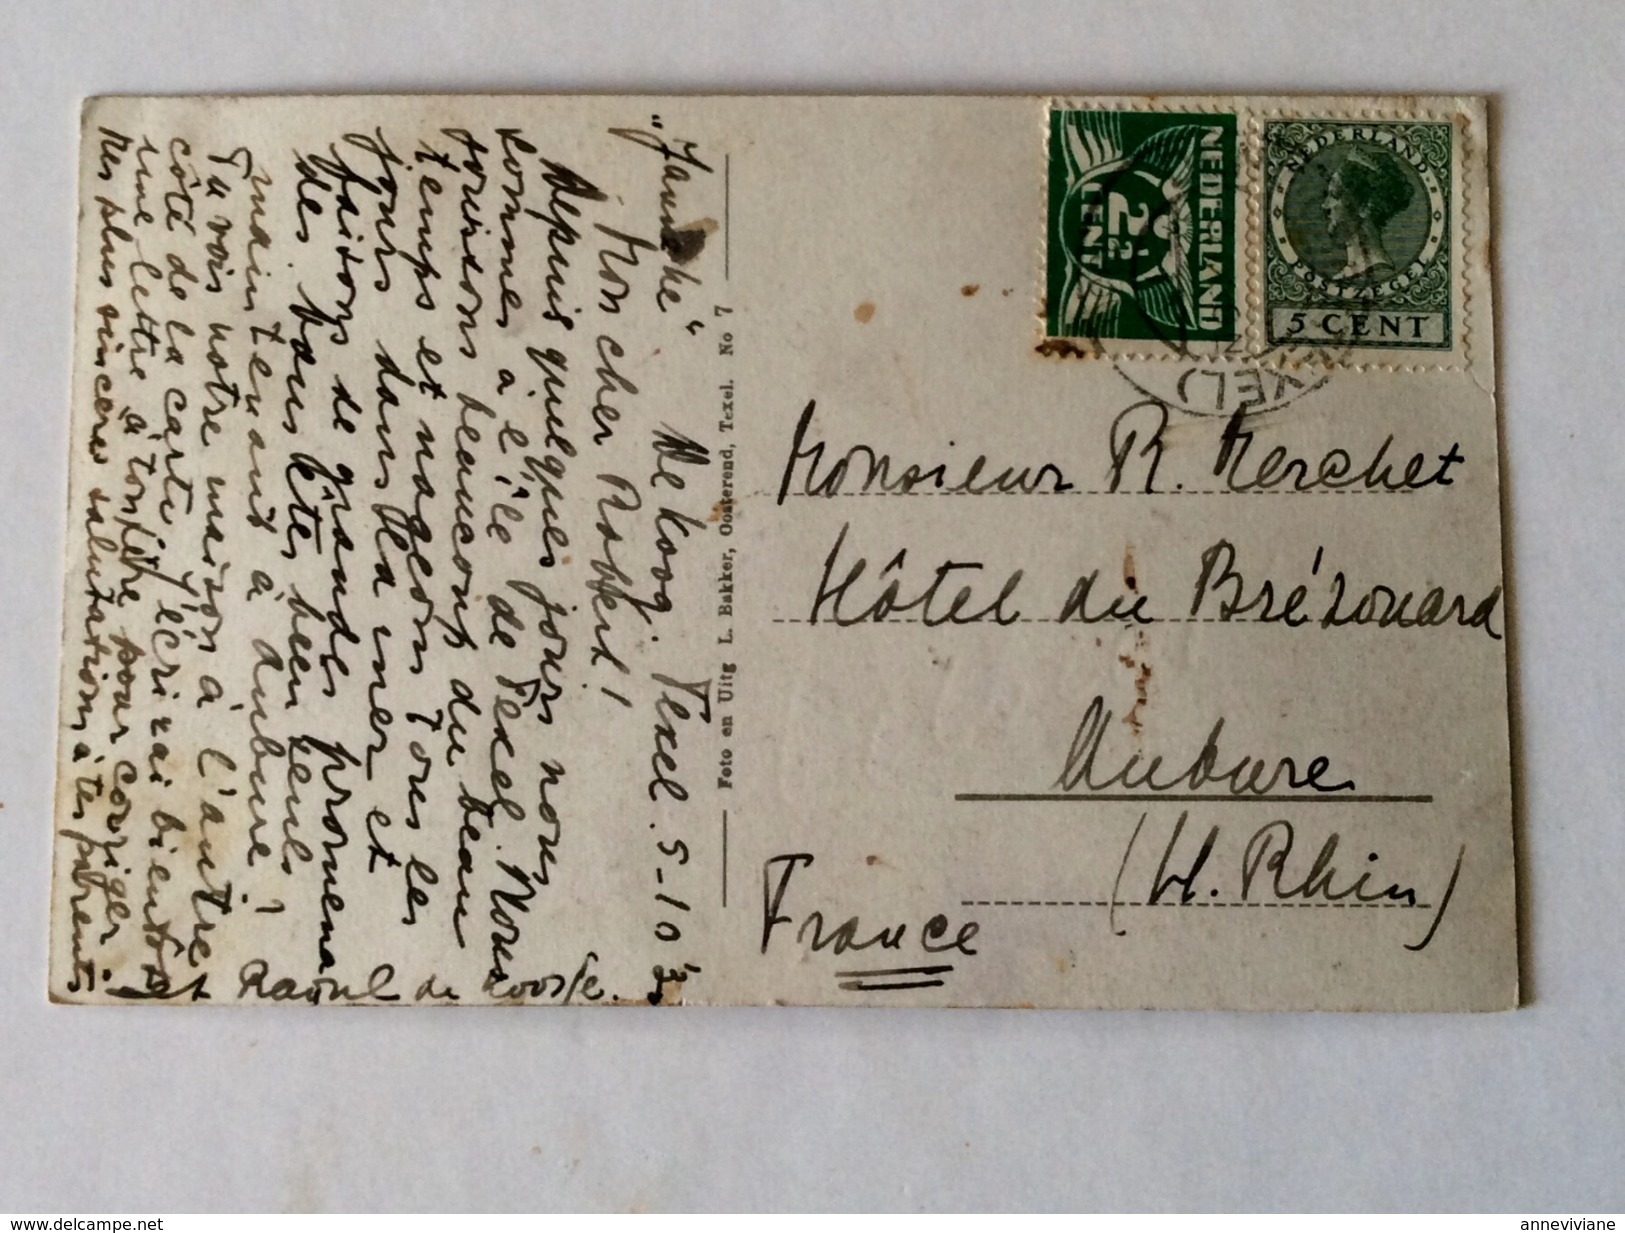 "Janneke" De Koog. Texel. 5-10 '3
Mon cher Robert!
Depuis quelques jours nous
sommes à l'île de Texel. Nous
jouissons beaucoup du beau
temps et nageons tous les
jours dans la mer et
faisons de grandes promena
des. Vous êtes bien seuls
maintenant à Aubure?
Tu vois notre maison à l'autre
côté de la carte. J'écrirai bientôt
une lettre à ton père pour corriger.
Mes plus sincères salutations à tes parents
et Raoul de
Foto en Uitg L. Bakker, Oosterend, Texel. No 7
NEDERLAND
2½
CENT
NEDERLAND
POSTZEGEL
5 CENT
(TEXEL)
Monsieur R. Merchet
Hôtel du Brézouard
Aubure
(H. Rhin)
France
www.delcampe.net
anneviviane